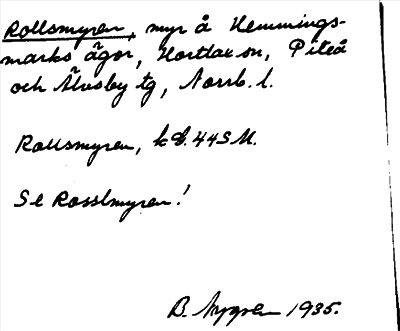 Rollsmyren, myr å Hemmings-
marks ägor, Hortlax sn, Piteå
och Älvsby tg, Norrb. l.
Rollsmyren, k E. 44 S M.
Se Rosslmyren!
B. Nygren 1935.